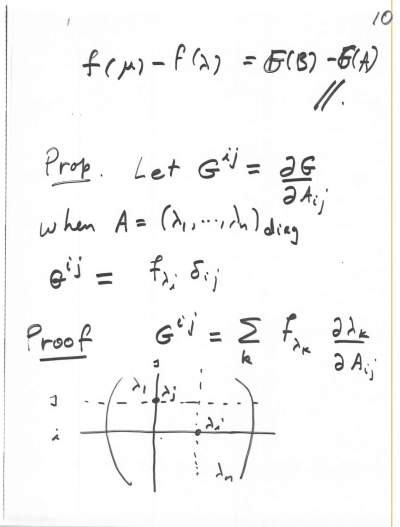 10
f(μ) - f(λ) = G(B) - G(A)
//.
Prop. Let G^{ij} = ∂G/∂A_{ij}
when A = (λ_1, ..., λ_n)_{diag}
G^{ij} = f_{λ_i} δ_{ij}
Proof G^{ij} = Σ_k f_{λ_k} ∂λ_k/∂A_{ij}
j
j λ_1 λ_j
i λ_i
λ_n